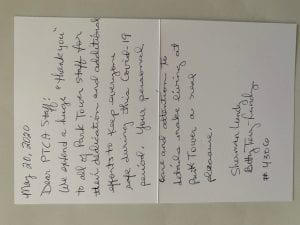 May 20, 2020
Dear PTCA Staff:
We extend a huge "thank you"
to all of Park Tower staff for
their dedication and additional
efforts to keep everyone
safe during this Covid-19
period. Your personal
care and attention to
details make living at
Park Tower a real
pleasure.
Sherman
Betty
# 4306